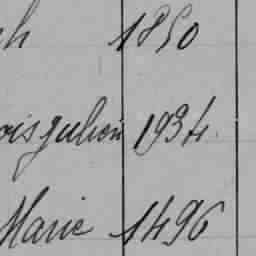 h 1850
ois julien 1934.
Marie 1496